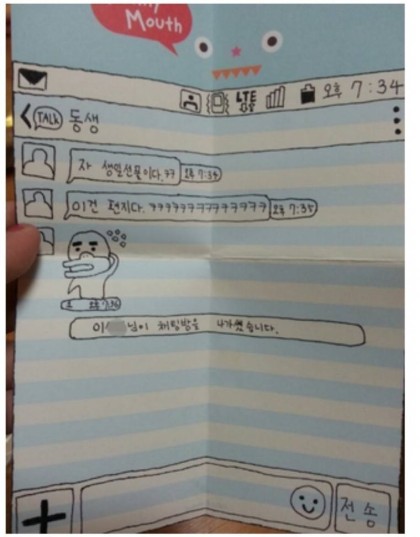 my
Mouth
LTE 오후 7:34
TALK 동생
자 생일선물이다.ㅋㅋ 오후 7:34
이건 편지다. ㅋㅋㅋㅋㅋㅋㅋㅋㅋㅋㅋㅋㅋㅋ 오후 7:35
오후 7:36
이 님이 채팅방을 나가셨습니다.
전송